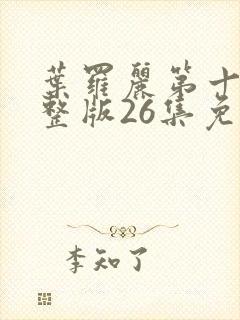 葉羅麗第十
整版26集免
李知了